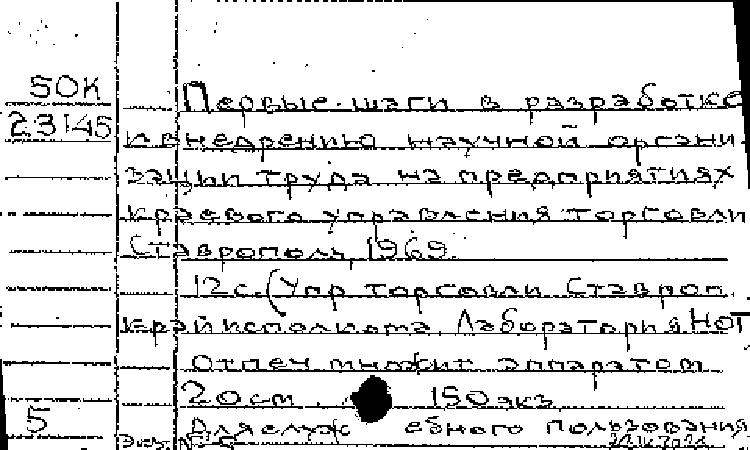 50К
23145
Первые шаги в разработке
и внедрению научной органи-
зации труда на предприятиях
краевого управления торговли
Ставрополь, 1969.
12 с. (Упр торговли Ставроп.
крайисполкома. Лаборатория НОТ
Отпеч множит аппаратом
20 см. 150 экз
5
Для служебного пользования
Экз. №